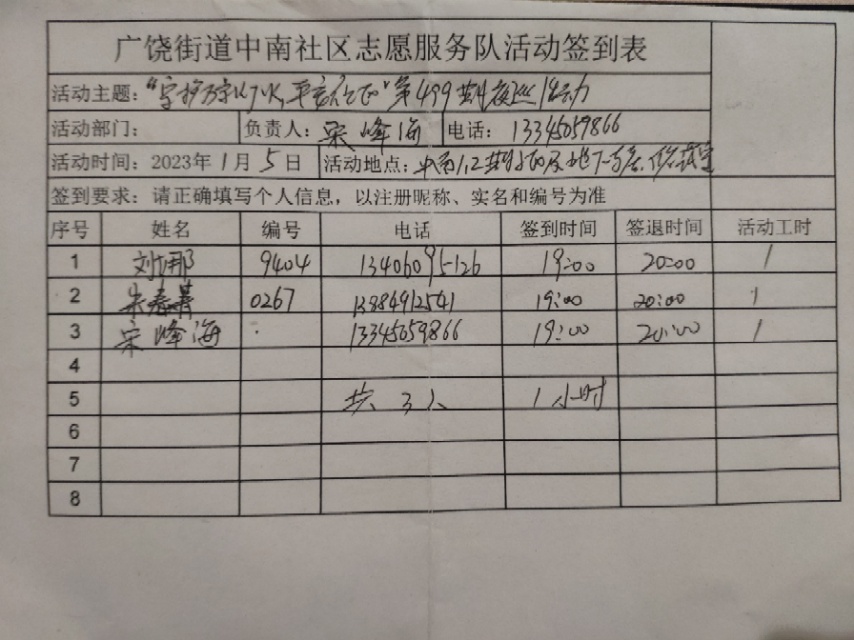 广饶街道中南社区志愿服务队活动签到表
活动主题：“守护万家灯火，平安社区”第499期夜巡活动
活动部门： 负责人：宋峰海 电话：13345059866
活动时间：2023年1月5日 活动地点：中南1.2期
签到要求：请正确填写个人信息，以注册昵称、实名和编号为准
序号 姓名 编号 电话 签到时间 签退时间 活动工时
1 刘娜 9404 13406095126 19:00 20:00 1
2 0267 13884912541 19:00 20:00 1
3 宋峰海 13345059866 19:00 20:00 1
4
5 共3人 1小时
6
7
8